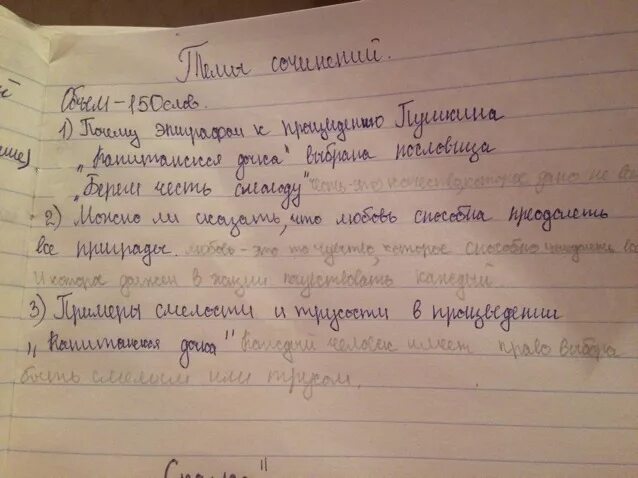 Темы сочинений.
Объем - 150 слов.
1) Почему эпиграфом к произведению Пушкина
"Капитанская дочка" выбрана пословица
"Береги честь смолоду" честь - это качество, которое дано не
2) Можно ли сказать, что любовь способна преодолеть
все преграды. любовь - это то чувство, которое способно
и которое должен в жизни почувствовать каждый.
3) Примеры смелости и трусости в произведении
"Капитанская дочка" Каждый человек имеет право выбора
быть смелым или трусом.